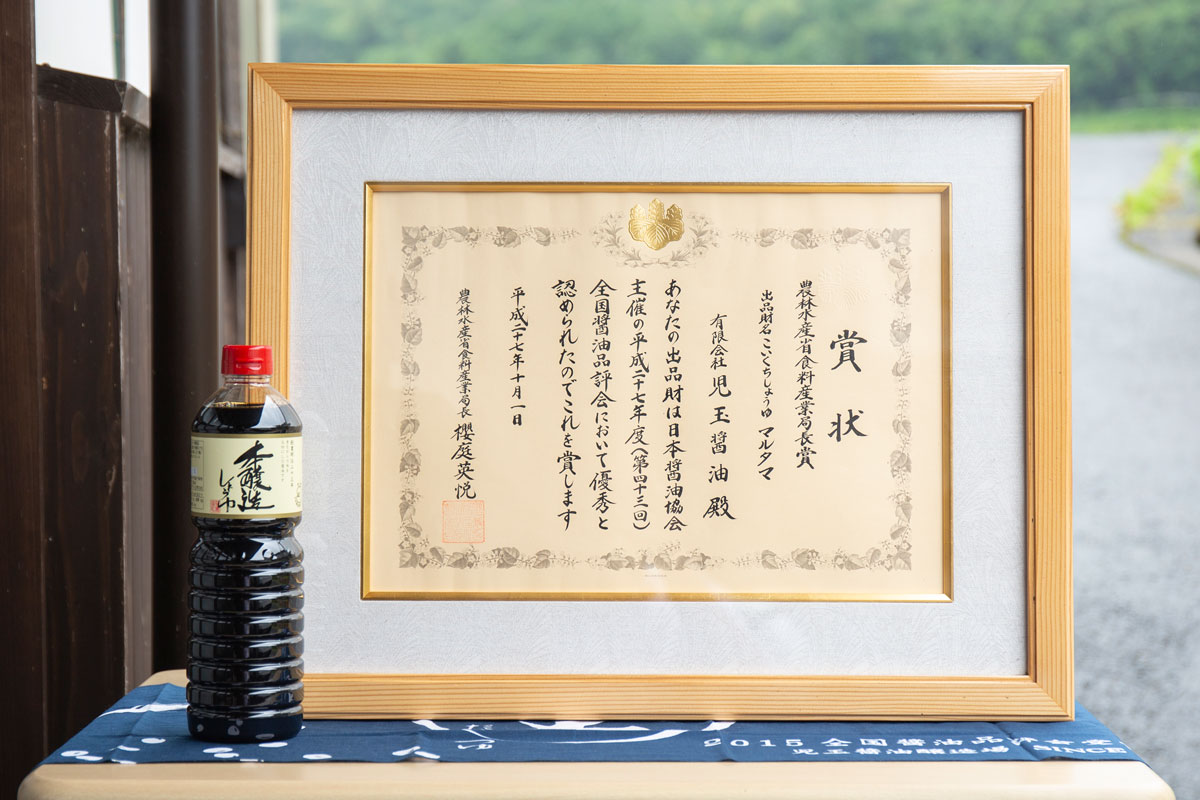 賞状
農林水産省食料産業局長賞
出品財名 こいくちしょうゆ マルタマ
有限会社 児玉醤油 殿
あなたの出品財は日本醤油協会
主催の平成二十七年度(第四十三回)
全国醤油品評会において優秀と
認められたのでこれを賞します
平成二十七年十月一日
農林水産省食料産業局長 櫻庭英悦
本醸造
しょうゆ
2015 全国醤油品評会
児玉醤油醸造場 SINCE